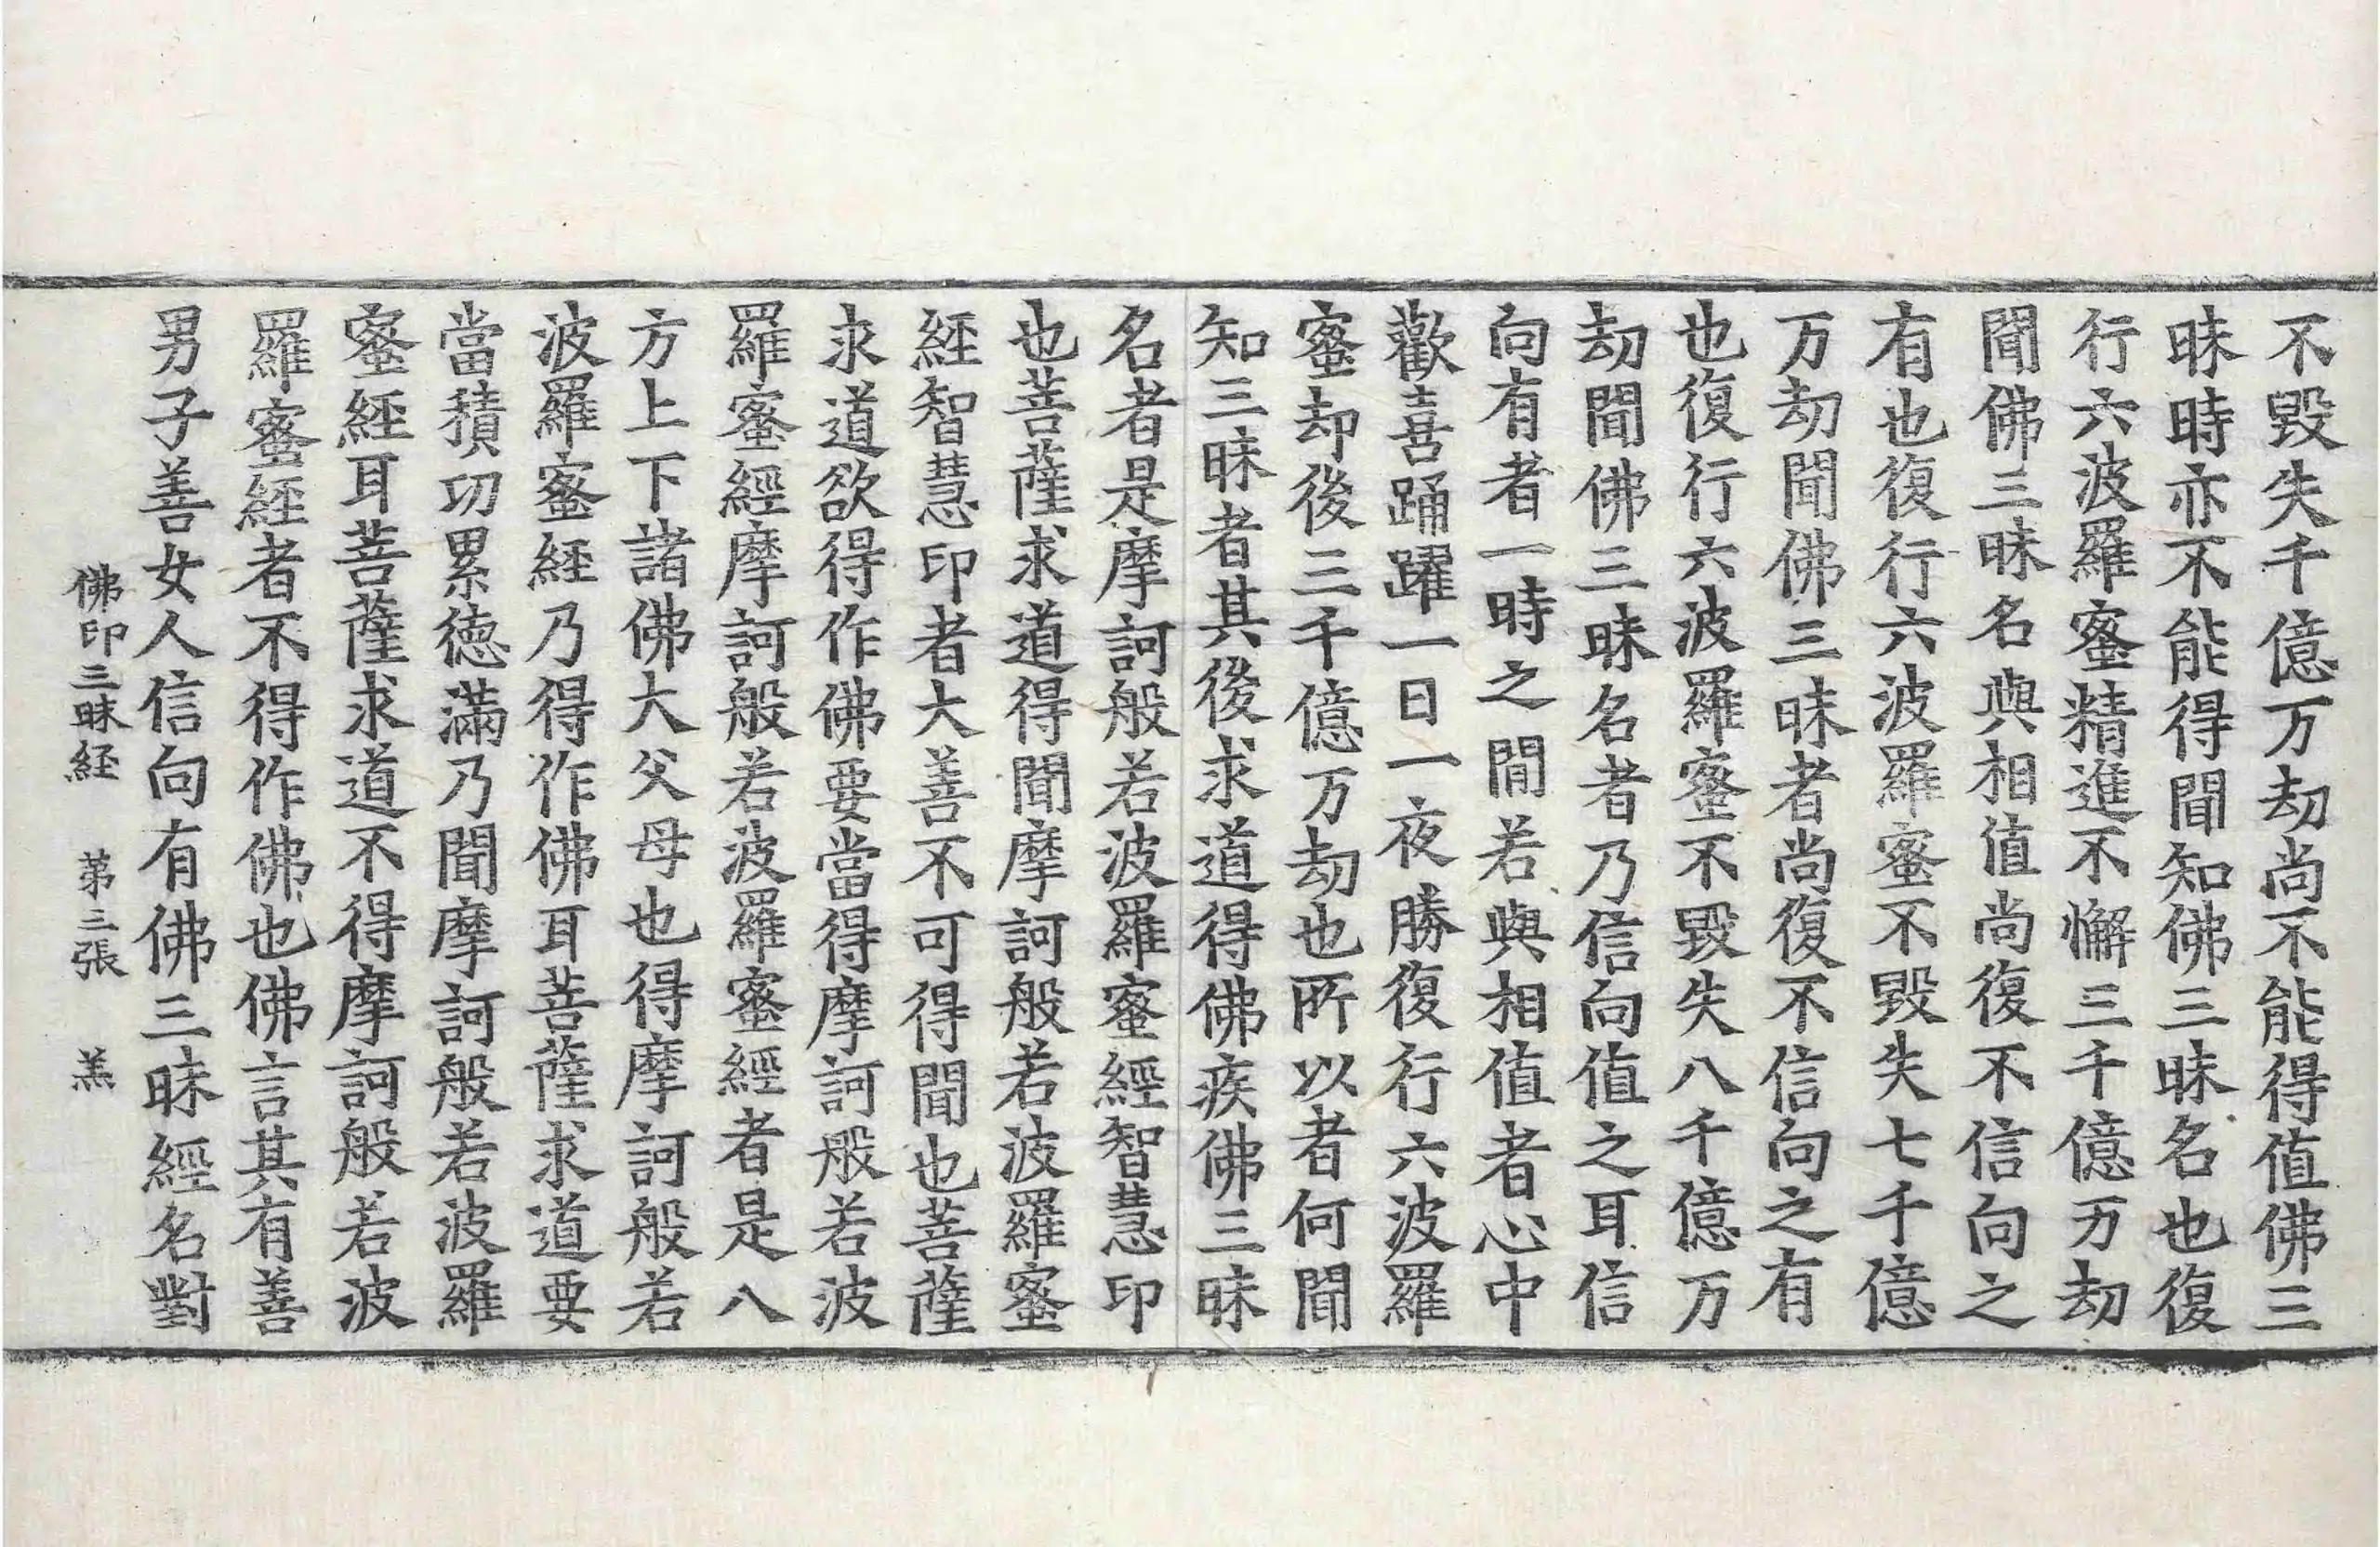 不毀失千億万劫尚不能得值佛三
昧時亦不能得聞知佛三昧名也復
行六波羅蜜精進不懈三千億万劫
聞佛三昧名與相值尚復不信向之
有也復行六波羅蜜不毀失七千億
万劫聞佛三昧者尚復不信向之有
也復行六波羅蜜不毀失八千億万
劫聞佛三昧名者乃信向值之耳信
向有者一時之間若與相值者心中
歡喜踊躍一日一夜勝復行六波羅
蜜却後三千億万劫也所以者何聞
知三昧者其後求道得佛疾佛三昧
名者是摩訶般若波羅蜜經智慧印
也菩薩求道得聞摩訶般若波羅蜜
經智慧印者大善不可得聞也菩薩
求道欲得作佛要當得摩訶般若波
羅蜜經摩訶般若波羅蜜經者是八
方上下諸佛大父母也得摩訶般若
波羅蜜經乃得作佛耳菩薩求道要
當積功累德滿乃聞摩訶般若波羅
蜜經耳菩薩求道不得摩訶般若波
羅蜜經者不得作佛也佛言其有善
男子善女人信向有佛三昧經名對
佛印三昧経 第三張 羔